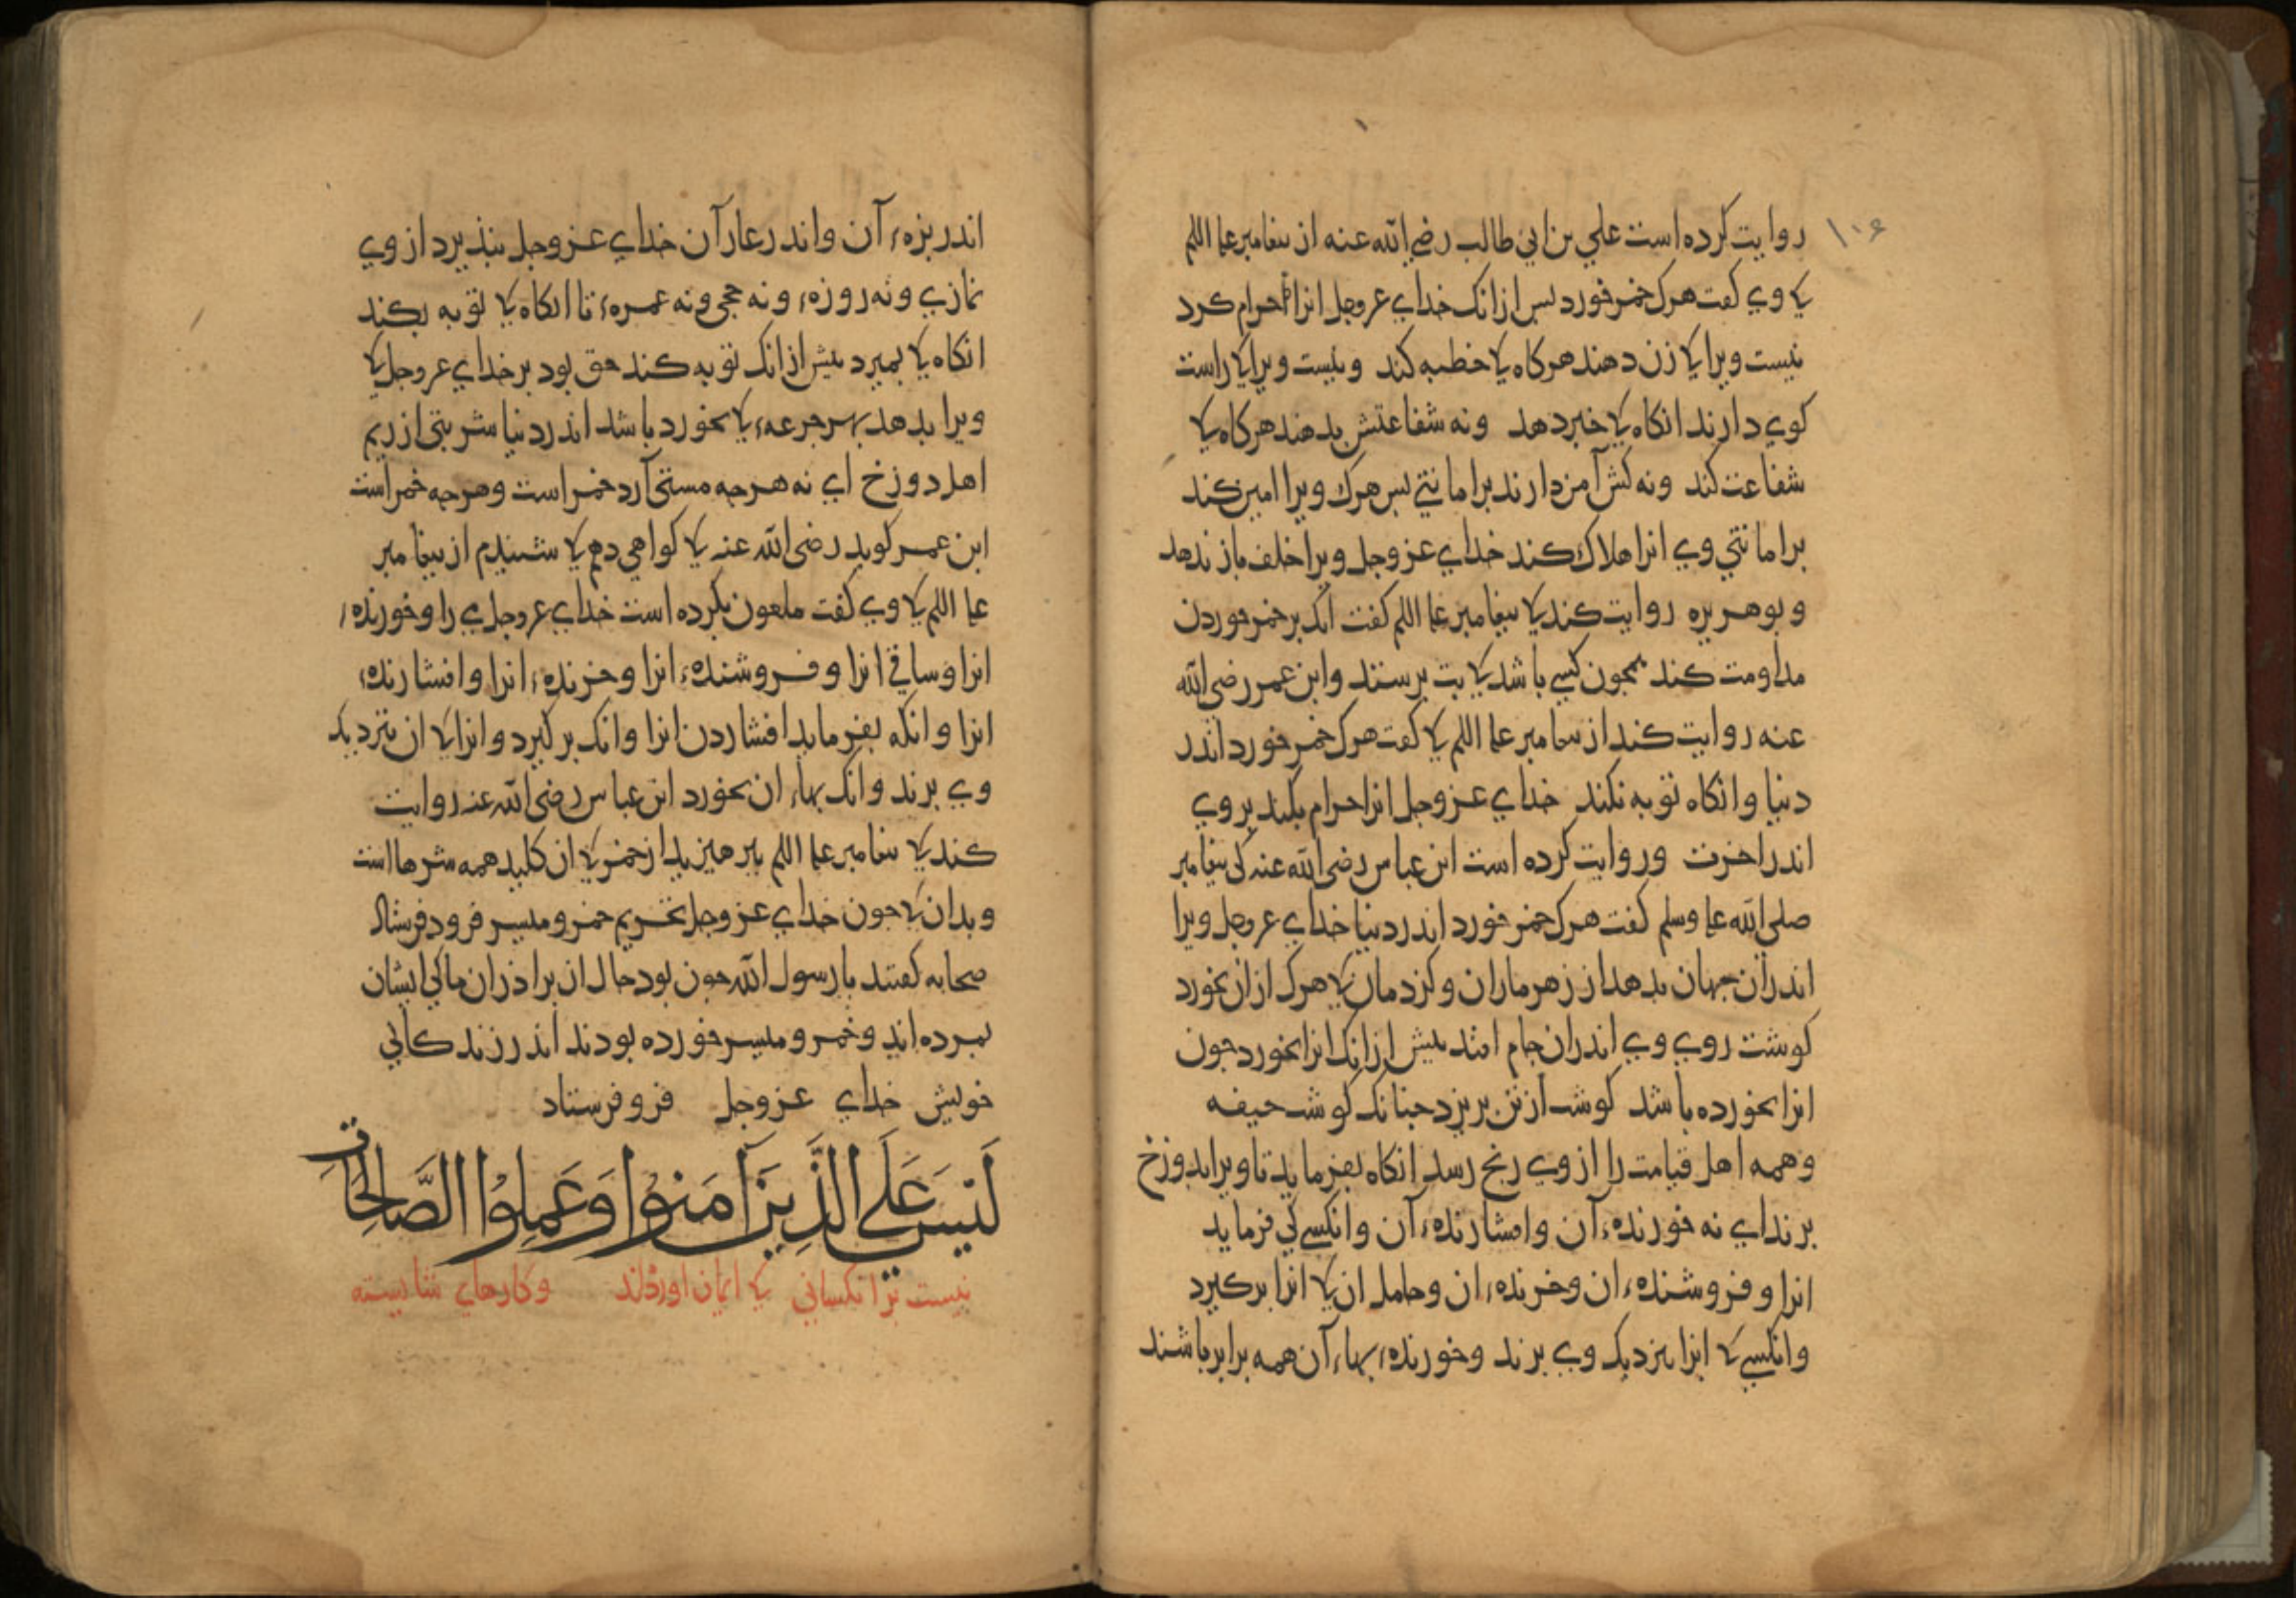 ۱۰۶
روایت کرده است علي بن ابي طالب رضي الله عنه از بیغامبر علیه السلم
کی وي کفت هرک خمر خورد بس ازانک خداي عزوجل انرا حرام کرد
نیست ویرا کی زن دهند هرکاه کی خطبه کند ونیست ویرا کی راست
کوي دارند انکاه کی خبر دهد ونه شفاعتش بدهند هرکاه کی
شفاعت کند ونه کش آمن دارند بر امانتي بس هرک ویرا امین کند
بر امانتي وي انرا هلاک کند خداي عزوجل ویرا خلف باز ندهد
وبوهریره روایت کند کی بیغامبر علیه السلم کفت انک بر خمر خوردن
مداومت کند همجون کسي باشد کی بت برستد وابن عمر رضي الله
عنه روایت کند از بیغامبر علیه السلم کی کفت هرک خمر خورد اندر
دنیا وانکاه توبه نکند خداي عزوجل انرا حرام بکند بر وي
اندر اخرت وروایت کرده است ابن عباس رضي الله عنه کی بیغامبر
صلي الله علیه وسلم کفت هرک خمر خورد اندر دنیا خداي عزوجل ویرا
اندران جهان بدهد از زهر ماران وکزدمان کی هرک ازان بخورد
کوشت روي وي اندران جام افتد بیش ازانک انرا بخورد جون
انرا بخورده باشد کوشت از تن بریزد جنانک کوشت جیفه
وهمه اهل قیامت را از وي رنج رسد انکاه بفرماید تا ویرا بدوزخ
برند اي نه خورندهٔ آن وافشارندهٔ آن وانکسي کی فرماید
انرا وفروشندهٔ ان وخرندهٔ ان وحامل ان کی انرا برکیرد
وانکسي کی انرا بنزدیک وي برند وخورندهٔ بهاء آن همه برابر باشند
اندر بزهٔ آن واندر عار آن خداي عزوجل نبذیرد از وي
نمازي ونه روزهٔ ونه حجي ونه عمرهٔ تا انکاه کی توبه بکند
انکاه کی بمیرد بیش ازانک توبه کند حق بود بر خداي عزوجل کی
ویرا بدهد بهر جرعهٔ کی بخورد باشد اندر دنیا شربتي از ریم
اهل دوزخ اي نه هرجه مستي آرد خمر است وهرجه خمر است
ابن عمر کوید رضي الله عنه کی کواهي دهم کی شنیدم از بیغامبر
علیه السلم کی وي کفت ملعون بکرده است خداي عزوجل مي را وخورندهٔ
انرا وساقي انرا وفروشندهٔ انرا وخرندهٔ انرا وافشارندهٔ
انرا وانکه بفرماید افشاردن انرا وانک برکیرد وانرا کی ان بنزدیک
وي برند وانک بهاء ان بخورد ابن عباس رضي الله عنه روایت
کند کی بیغامبر علیه السلم بپرهیزید از خمر کی ان کلید همه شرها است
وبدان کی جون خداي عزوجل تحریم خمر ومیسر فروذ فرستاد
صحابه کفتند یا رسول الله جون بود حال ان براذران ما کی ایشان
بمرده اند وخمر ومیسر خورده بودند اندر زندکاني
خویش خداي عزوجل فرو فرستاد
لَيْسَ عَلَى الَّذِينَ آمَنُوا وَعَمِلُوا الصَّالِحَاتِ
نیست بر انکساني کی ایمان اوردند وکارهاي شایسته